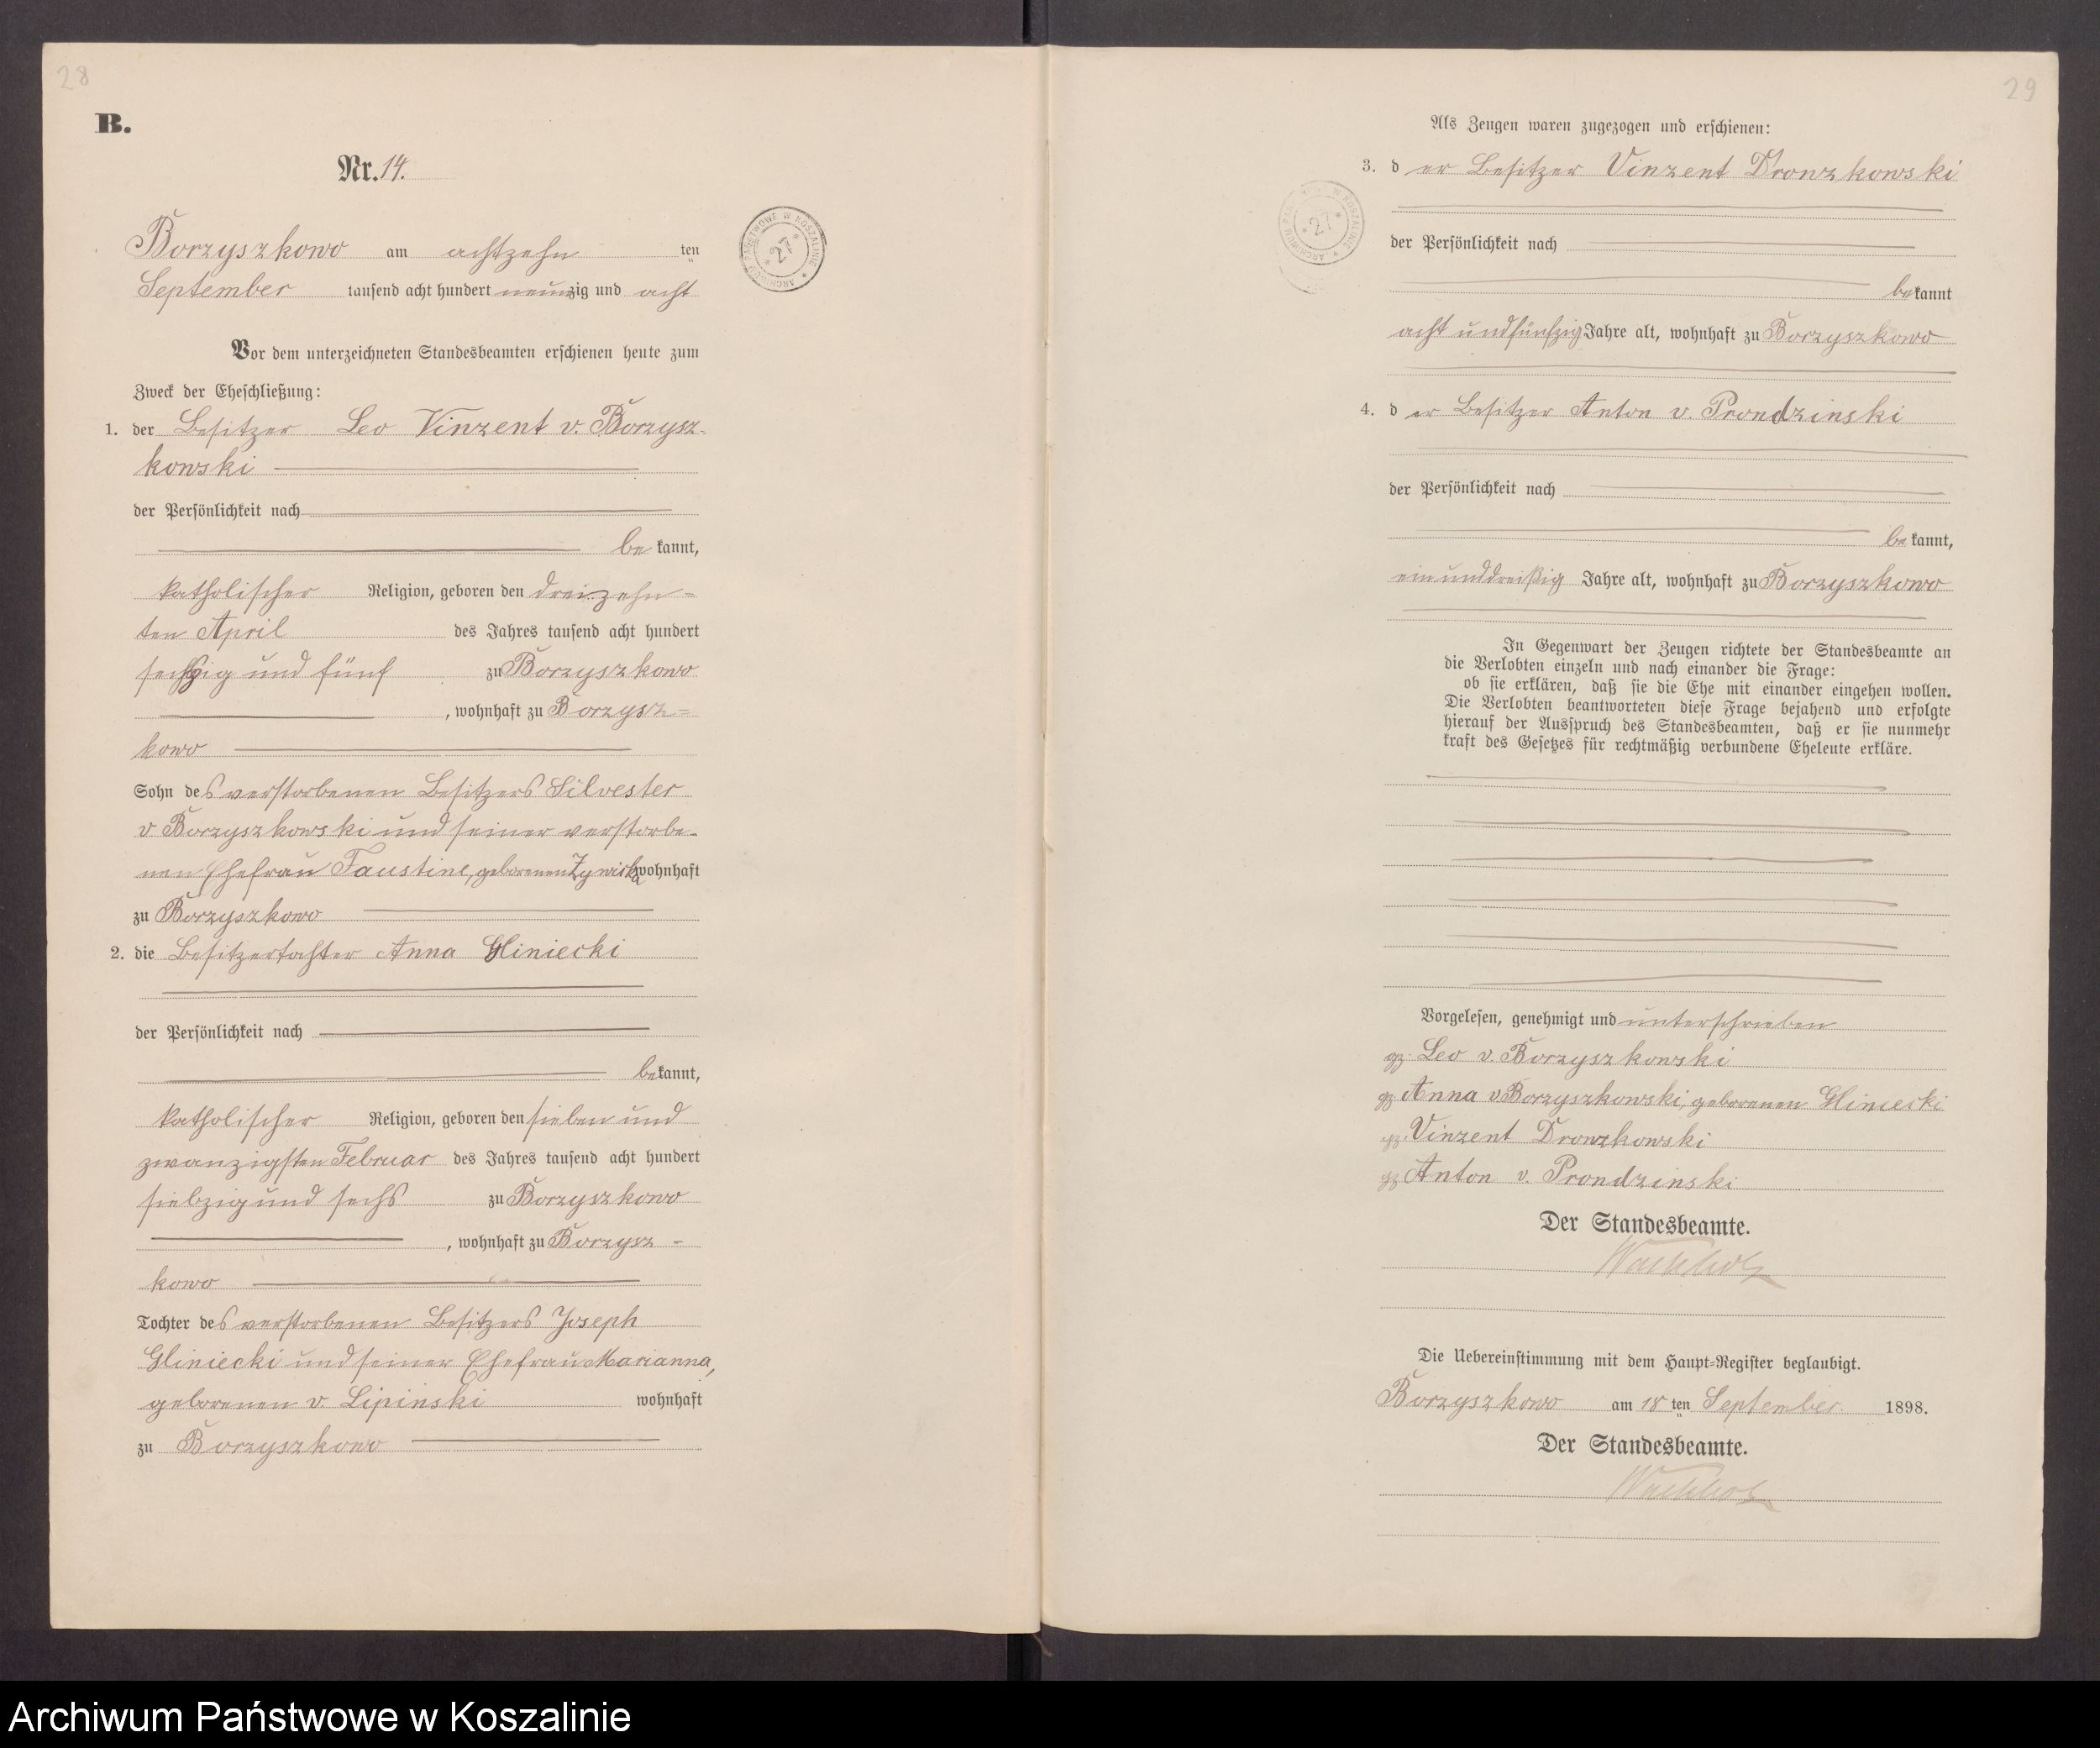 28
B.
Nr. 14.
Borzyszkowo am achtzehn ten
September tausend acht hundert neunzig und acht
ARCHIWUM PAŃSTWOWE W KOSZALINIE * 27 *
Vor dem unterzeichneten Standesbeamten erschienen heute zum
Zweck der Eheschließung:
1. der Besitzer Leo Vinzent v. Borzysz-
kowski
der Persönlichkeit nach
be kannt,
katholischer Religion, geboren den dreizehn-
ten April des Jahres tausend acht hundert
sechzig und fünf zu Borzyszkowo
, wohnhaft zu Borzysz-
kowo
Sohn des verstorbenen Besitzers Silvester
v Borzyszkowski und seiner verstorbe-
nen Ehefrau Faustine, geborenen wohnhaft
zu Borzyszkowo
2. die Besitzertochter Anna Gliniecki
der Persönlichkeit nach
bekannt,
katholischer Religion, geboren den sieben und
zwanzigsten Februar des Jahres tausend acht hundert
siebzig und sechs zu Borzyszkowo
, wohnhaft zu Borzysz-
kowo
Tochter des verstorbenen Besitzers Joseph
Gliniecki und seiner Ehefrau Marianna,
geborenen v. Lipinski wohnhaft
zu Borzyszkowo
29
Als Zeugen waren zugezogen und erschienen:
3. der Besitzer Vinzent Dronzkowski
ARCHIWUM PAŃSTWOWE W KOSZALINIE * 27 *
der Persönlichkeit nach
bekannt
acht und fünfzig Jahre alt, wohnhaft zu Borzyszkowo
4. der Besitzer Anton v. Prondzinski
der Persönlichkeit nach
be kannt,
ein und dreißig Jahre alt, wohnhaft zu Borzyszkowo
In Gegenwart der Zeugen richtete der Standesbeamte an
die Verlobten einzeln und nach einander die Frage:
ob sie erklären, daß sie die Ehe mit einander eingehen wollen.
Die Verlobten beantworteten diese Frage bejahend und erfolgte
hierauf der Ausspruch des Standesbeamten, daß er sie nunmehr
kraft des Gesetzes für rechtmäßig verbundene Eheleute erkläre.
Vorgelesen, genehmigt und unterschrieben
gz. Leo v. Borzyszkowski
gz Anna v Borzyszkowski, geborenen Gliniecki
gz. Vinzent Dronzkowski
gz Anton v. Prondzinski
Der Standesbeamte.
Wachholz
Die Uebereinstimmung mit dem Haupt-Register beglaubigt.
Borzyszkowo am 18 ten September 1898.
Der Standesbeamte.
Wachholz
Archiwum Państwowe w Koszalinie